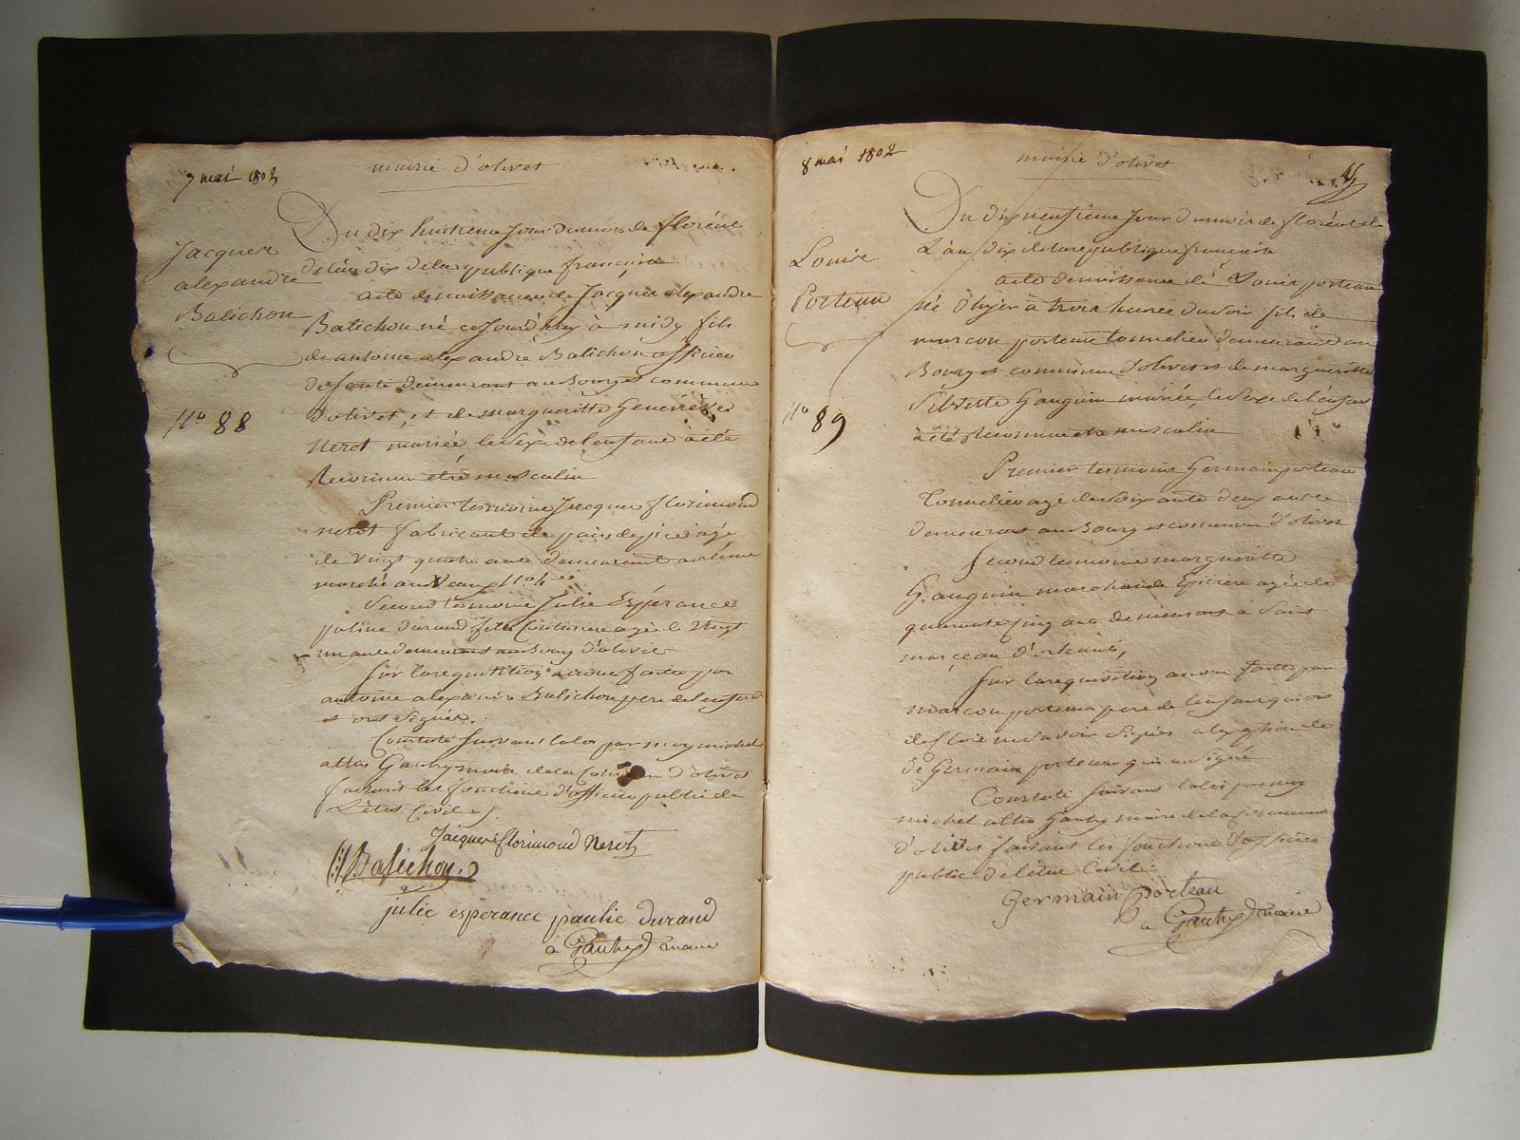 mairie d'olivet
7 mai 1802
Jacques
alexandre
Balichon
No 88
Du dix huitieme jour du mois de floréal
de l'an dix de la republique française
acte de naissance de Jacques alexandre
Balichon né ce jourd'huy à midy fils
de antoine alexandre Balichon officier
de santé demeurant au Bourg et commune
d'olivet, et de margueritte Genevieve
Nerot mariée, le sexe de l'enfant a été
Reconnu etre masculin
Premier temoin Jacques florimond
nerot fabricant de pain d'épice agé
de vingt quatre ans demeurant
marché au Veaux
Second temoin Julie Espérance
pauline durand fille Couturiere agée de Vingt
un ans demeurant au Bourg d'olivet
sur la requisition a nous faite par
antoine alexandre Balichon pere de l'enfant
et ont signés.
Constaté suivant la loi par moy michel
attas Gauthy maire de la Commune d'olivet
faisant les fonctions d'officier public de
L'état Civil
Jacques florimond Nerot
Balichon
julie esperance paulie durand
a Gauthy maire
mairie d'olivet
8 mai 1802
Louis
Porteau
No 89
Du dix neufvieme jour du mois de floréal de
L'an dix de la republique francaise
acte de naissance de Louis porteau
né d'hyer à trois heures du soir fils de
marcou porteau tonnelier demeurant au
Bourg et commune d'olivet et de margueritte
Silvette Gauguin mariée, le sexe de l'enfant
a été Reconnu etre masculin
Premier temoin Germain porteau
Tonnelier agé de soixante deux ans
demeurant au Bourg et commune d'olivet
second temoin margueritte
Gauguin marchande Epiciere agée de
quarante cinq ans demeurant à Saint
marceau d'orleans,
sur la requisition a nous faitte par
marcou porteau pere de l'enfant qui ont
declaré ne savoir signer a l'exption de
de Germain porteau qui a signé
Constaté suivant la loi par moy
michel attas Gauthy maire de la commune
d'olivet faisant les fonctions d'officier
public de l'état Civil
Germain Porteau
a Gauthy maire